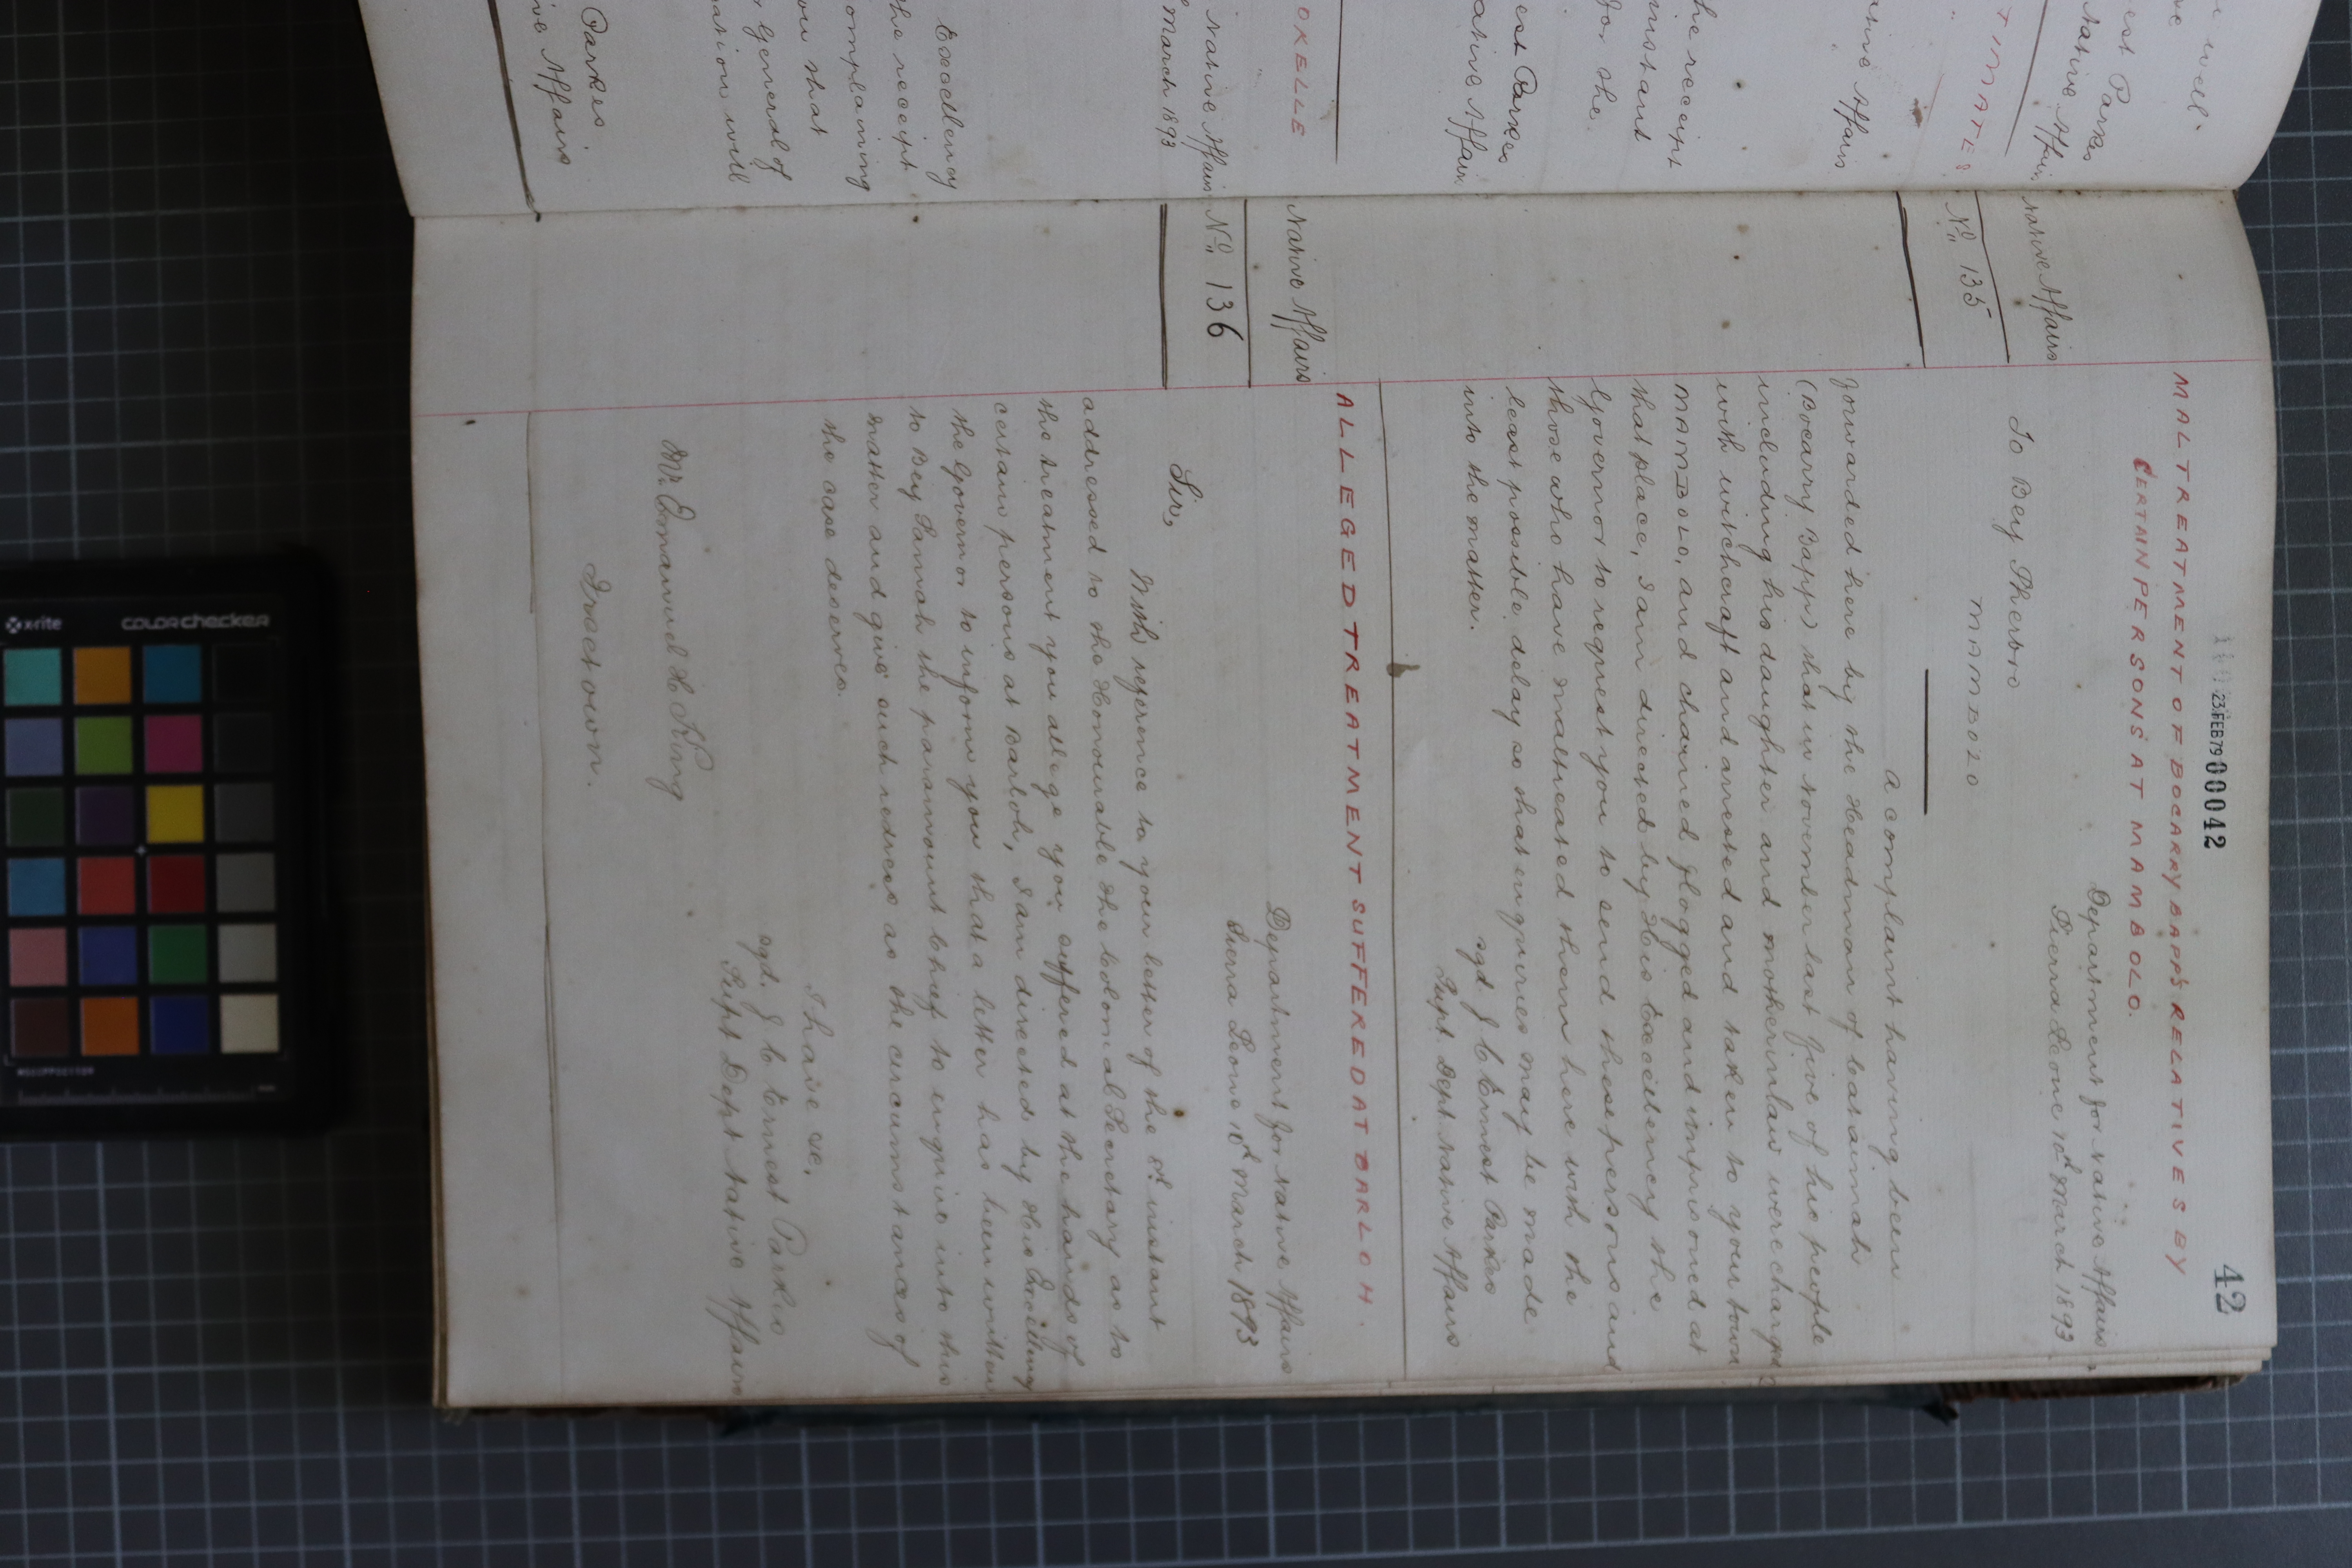 42
23 FEB 79 00042
MALTREATMENT OF BOCARRY BAPP'S RELATIVES BY
CERTAIN PERSONS AT MAMBOLO.
Native Affairs
No. 135
Department for Native Affairs
Sierra Leone 10th March 1893.
To Bey Sherbro
MAMBOLO
A complaint having been
forwarded here by the Headman of
(Bocarry Bapp) that in November last five of his people
including his daughter and motherinlaw were charged
with witchcraft and arrested and taken to your town
MAMBOLO, and chained flogged and imprisoned at
that place, I am directed by His Excellency the
Governor to request you to send these persons and
those who have maltreated them here with the
least possible delay so that enquiries may be made
into the matter.
sgd J C Ernest Parkes
Supt. Dept Native Affairs
ALLEGED TREATMENT SUFFERED AT BARLOH.
Native Affairs
No. 136
Department for Native Affairs
Sierra Leone 10th March 1893
Sir,
With reference to your letter of the instant
addressed to the Honourable the Colonial Secretary as to
the treatment you allege you suffered at the hands of
certain persons at Barloh, I am directed by His Excellency
the Governor to inform you that a letter has been written
to Bey Samah the paramount Chief to enquire into this
matter and give such redress as the circumstances of
the case deserves.
I have &c.
sgd. J C Ernest Parkes
Supt Dept Native Affairs
Mr. Emanuel H King
Freetown.
well.
est Parkes
Native Affairs
TIMATE
ative Affairs
he receipt
instant
for the
est Parkes
ative Affairs
OKELLE
Native Affairs
March 1893
Excellency
the receipt
omplaining
ou that
General of
ation will
Parkes.
ve Affairs
x-rite
colorchecker